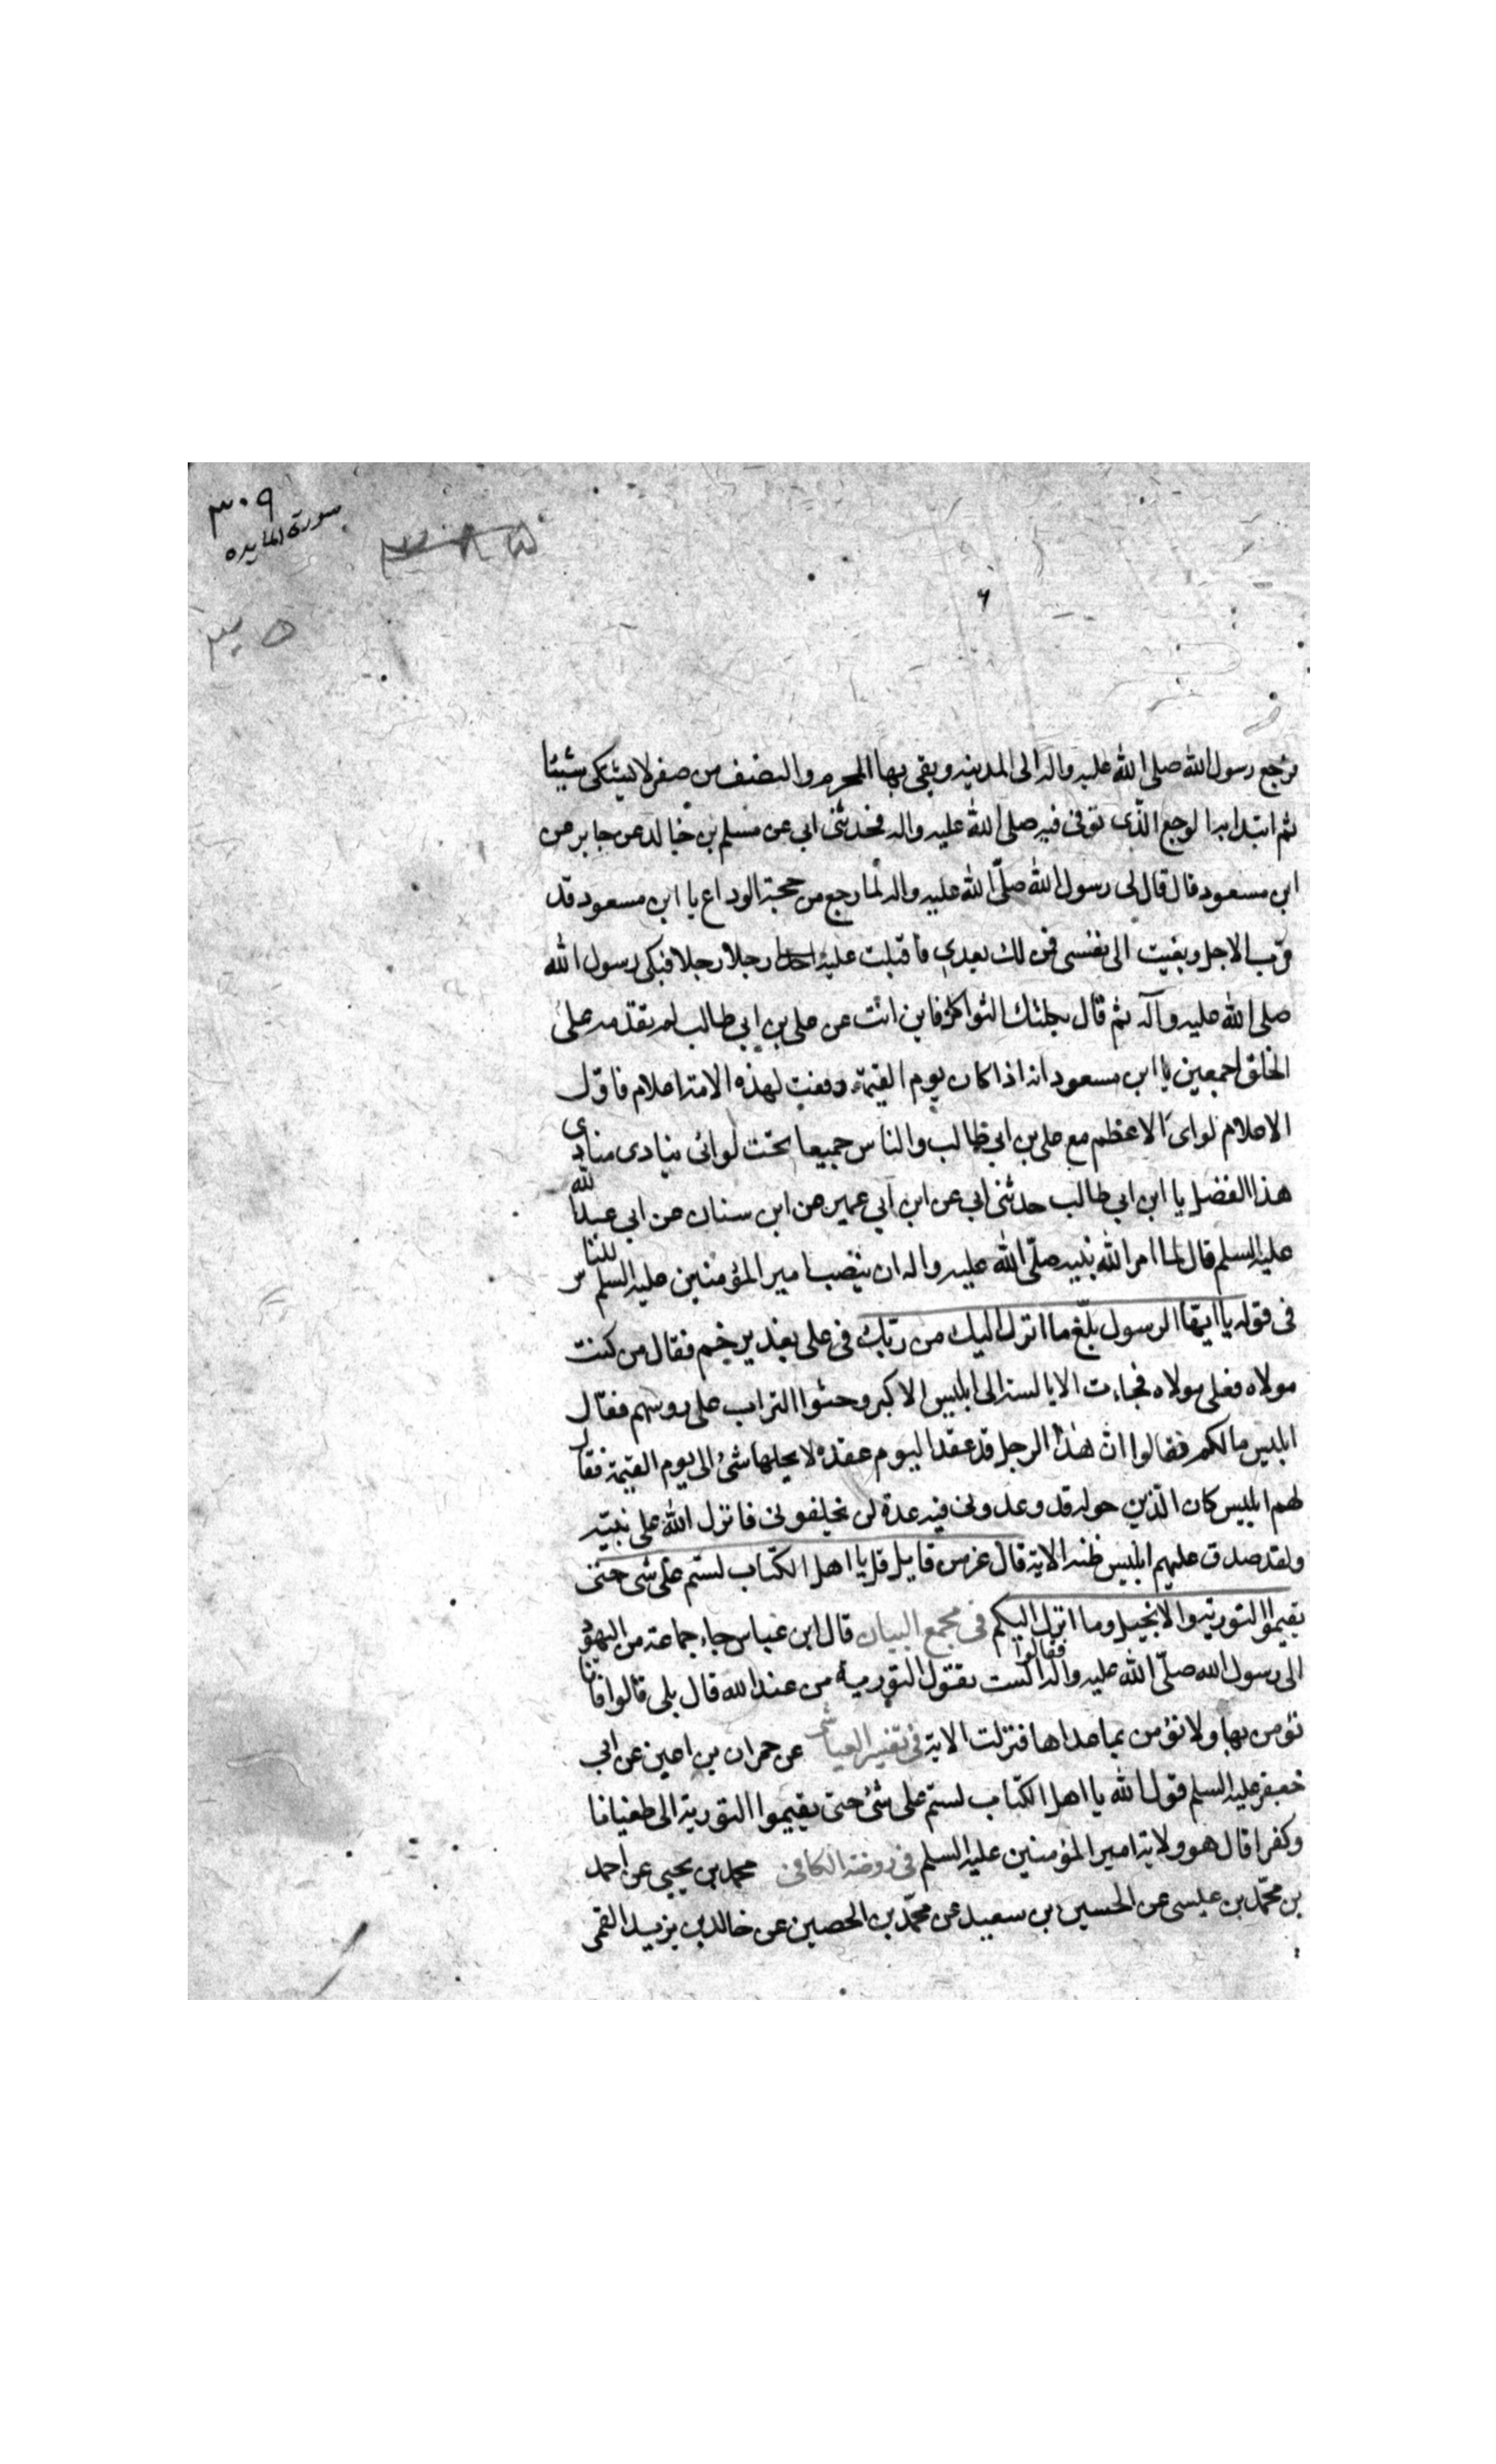 ٣٠٩
سورة المايده
٣٠٥
٦
فرجع رسول الله صلى الله عليه واله الى المدينه وبقى بها المحرم والنصف من صفر لا يشتكى شيئا
ثم ابتدا به الوجع الذى توفى فيه صلى الله عليه واله فحدثنى ابى عن مسلم بن خالد عن جابر عن
ابن مسعود قال قال لى رسول الله صلى الله عليه واله لما رجع من حجة الوداع يا ابن مسعود قد
قرب الاجل وبغيت الى نفسى فمن لك بعدى فاقبلت عليه رجلا رجلا فبكى رسول الله
صلى الله عليه وآله ثم قال ثكلتك الثواكل فاين انت عن على بن ابى طالب لم تقدمه على
الخلق اجمعين يا ابن مسعود انه اذا كان يوم القيمة رفعت لهذه الامة اعلام فاول
الاعلام لواى الاعظم مع على بن ابى طالب والناس جميعا تحت لوائى ينادى منادى
هذا الفضل يا ابن ابى طالب حدثنى ابى عن ابن ابى عمير عن ابن سنان عن ابى عبد الله
عليه السلم قال لما امر الله نبيه صلى الله عليه واله ان ينصب امير المؤمنين عليه السلم للناس
فى قوله يا ايها الرسول بلغ ما انزل اليك من ربك فى على بغدير خم فقال من كنت
مولاه فعلى مولاه فجاءت الابالسة الى ابليس الاكبر وحثوا التراب على روسهم فقال
ابليس مالكم فقالوا ان هذا الرجل قد عقد اليوم عقدة لا يحلها شئ الى يوم القيمة فقال
لهم ابليس كان الذين حوله قد وعدونى فيه عدة لن يخلفونى فانزل الله على نبيه
ولقد صدق عليهم ابليس ظنه الاية قال عز من قايل قل يا اهل الكتاب لستم على شى حتى
تقيموا التورية والانجيل وما انزل اليكم فى مجمع البيان قال ابن عباس جاء جماعة من اليهود
الى رسول الله صلى الله عليه واله فقالوا الست تقول التورية من عند الله قال بلى قالوا فانا
نؤمن بها ولا نؤمن بما عداها فنزلت الاية فى تفسير العياشى عن حمران بن اعين عن ابى
جعفر عليه السلم قول الله يا اهل الكتاب لستم على شئ حتى يقيموا التورية الى طغيانا
وكفرا قال هو ولاية امير المؤمنين عليه السلم فى روضة الكافى محمد بن يحيى عن احمد
بن محمد بن عيسى عن الحسين بن سعيد عن محمد بن الحصين عن خالد بن يزيد القمى